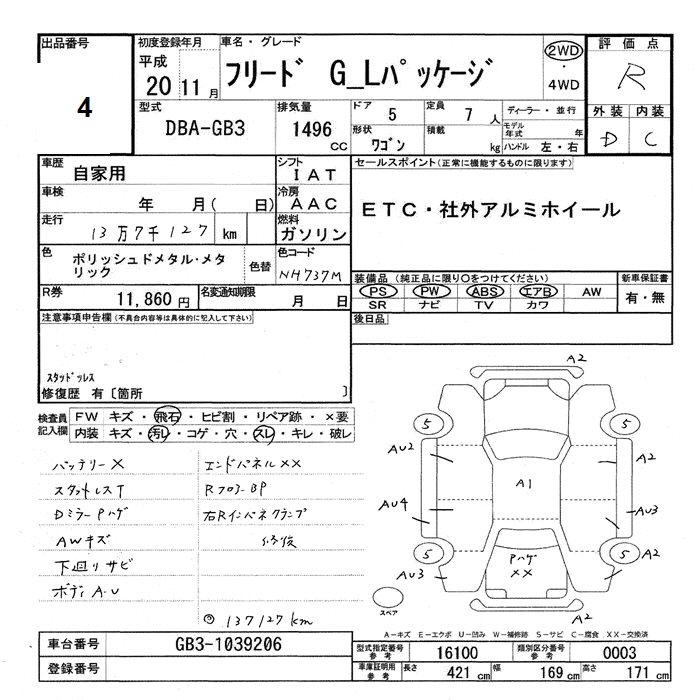 出品番号
4
初度登録年月
平成
20 11月
車名・グレード
フリード G_Lパッケージ
2WD
・
4WD
評価点
R
型式
DBA-GB3
排気量
1496 cc
ドア 5
定員 7 人
形状 ワゴン
積載 kg
ディーラー・並行
モデル年式 年
ハンドル 左・右
外装 内装
D C
車歴 自家用
シフト IAT
車検 年 月( 日)
冷房 AAC
走行 13万7千127 km
燃料 ガソリン
色 ポリッシュドメタル・メタリック
色替
色コード NH737M
R券 11,860円
名変通知期限 月 日
セールスポイント(正常に機能するものに限ります)
ETC・社外アルミホイール
装備品 (純正品に限り○をつけてください)
PS PW ABS エアB AW
SR ナビ TV カワ
新車保証書
有・無
後日品
注意事項申告欄(不具合内容等は具体的に記入して下さい)
スタッドレス
修復歴 有〔箇所 〕
検査員記入欄
FW キズ・飛石・ヒビ割・リペア跡・×要
内装 キズ・汚レ・コゲ・穴・スレ・キレ・破レ
バッテリー× エンドパネル××
スタットレスT Rフロアー BP
DミラーPハゲ 右Rインパネクランプ
AWキズ 修復
下廻りサビ
ボディA・U
137127km
A2
5 5
AU2 A2
A1
AU4 AU3
5 5
Pハゲ
××
A2
AU3
スペア
A2
A-キズ E-エクボ U-凹み W-補修跡 S-サビ C-腐食 XX-交換済
車台番号 GB3-1039206
登録番号
型式指定番号 参考 16100
類別区分番号 参考 0003
車庫証明用 参考 長さ 421 cm 幅 169 cm 高さ 171 cm